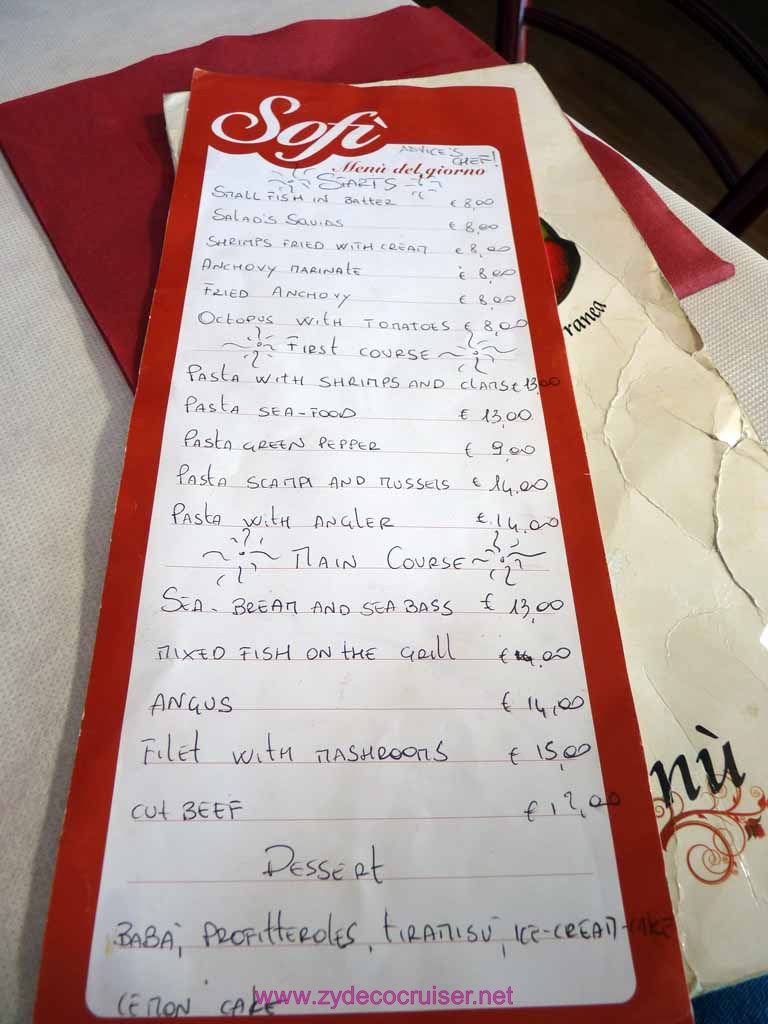 Sofì
ADVICE'S CHEF!
Menù del giorno
STARTS
SMALL FISH IN BATTER € 8,00
SALAD'S SQUIDS € 8,00
SHRIMPS FRIED WITH CREAM € 8,00
ANCHOVY MARINATE € 8,00
FRIED ANCHOVY € 8,00
OCTOPUS WITH TOMATOES € 8,00
FIRST COURSE
PASTA WITH SHRIMPS AND CLAMS € 13,00
PASTA SEA-FOOD € 13,00
PASTA GREEN PEPPER € 9,00
PASTA SCAMPI AND MUSSELS € 14,00
PASTA WITH ANGLER € 14,00
MAIN COURSE
SEA-BREAM AND SEA BASS € 13,00
MIXED FISH ON THE GRILL €
ANGUS € 14,00
FILET WITH MASHROOMS € 15,00
CUT BEEF
DESSERT
BABÀ, PROFITTEROLES, TIRAMISÙ, ICE-CREAM-CAKE
LEMON CAKE
ranea
nù
www.zydecocruiser.net